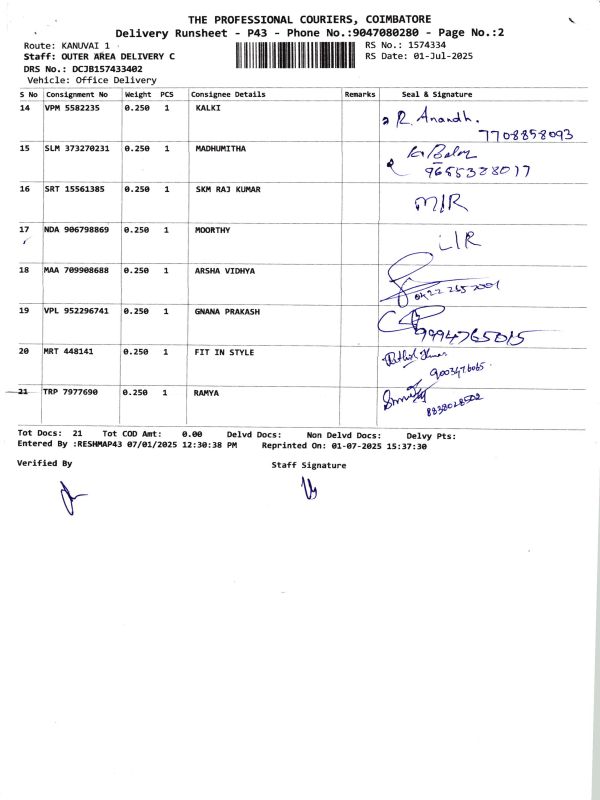 THE PROFESSIONAL COURIERS, COIMBATORE
Delivery Runsheet - P43 - Phone No.:9047080280 - Page No.:2
Route: KANUVAI 1 RS No.: 1574334
Staff: OUTER AREA DELIVERY C RS Date: 01-Jul-2025
DRS No.: DCJB157433402
Vehicle: Office Delivery
S No Consignment No Weight PCS Consignee Details Remarks Seal & Signature
14 VPM 5582235 0.250 1 KALKI R. Anandh.
7708858093
15 SLM 373270231 0.250 1 MADHUMITHA
9655328017
16 SRT 15561385 0.250 1 SKM RAJ KUMAR M/R
17 NDA 906798869 0.250 1 MOORTHY L/R
18 MAA 709908688 0.250 1 ARSHA VIDHYA
0422 2657001
19 VPL 952296741 0.250 1 GNANA PRAKASH
9994765015
20 MRT 448141 0.250 1 FIT IN STYLE
9003476065
21 TRP 7977690 0.250 1 RAMYA
8838028502
Tot Docs: 21 Tot COD Amt: 0.00 Delvd Docs: Non Delvd Docs: Delvy Pts:
Entered By :RESHMAP43 07/01/2025 12:30:38 PM Reprinted On: 01-07-2025 15:37:30
Verified By Staff Signature